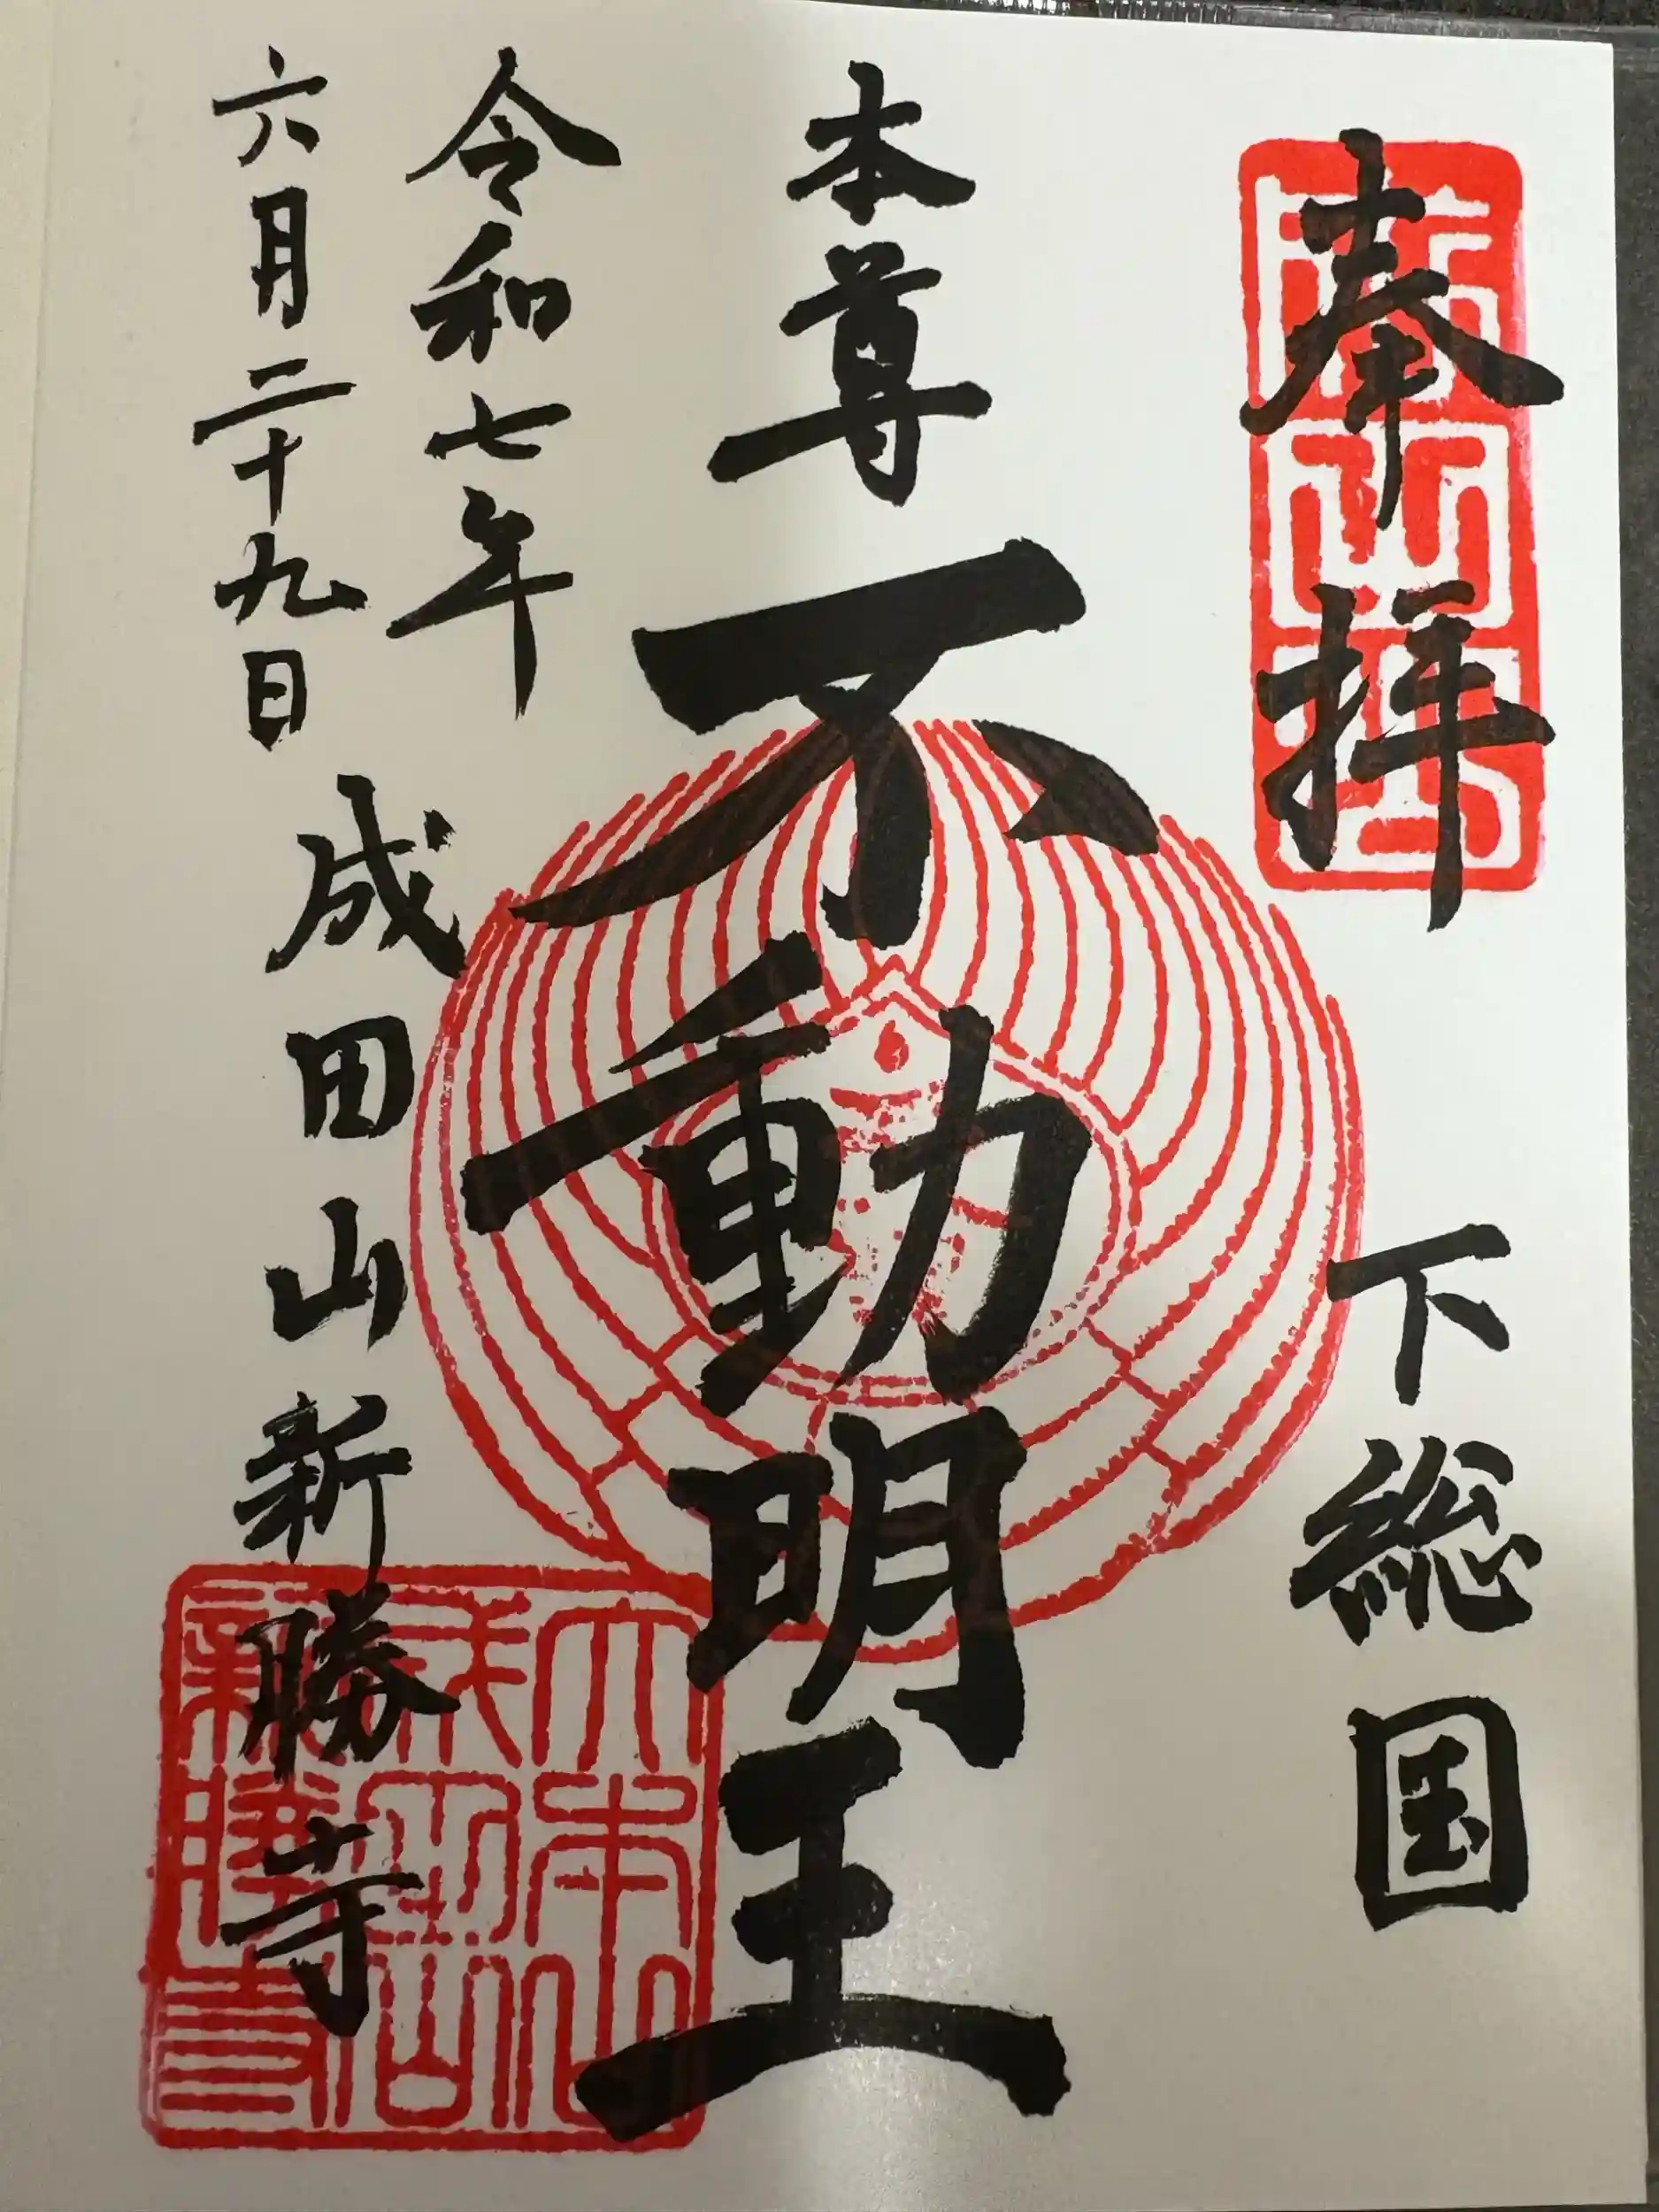 奉拝
下総国
本尊 不動明王
令和七年
六月二十九日
成田山新勝寺
大本山
成田山
新勝寺